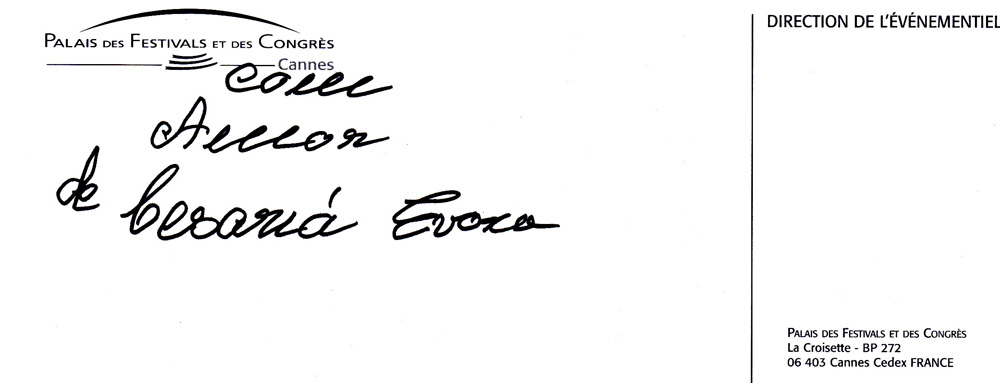 PALAIS DES FESTIVALS ET DES CONGRÈS
Cannes
com
Amor
de Cesariá Evora
DIRECTION DE L'ÉVÉNEMENTIEL
PALAIS DES FESTIVALS ET DES CONGRÈS
La Croisette - BP 272
06 403 Cannes Cedex FRANCE